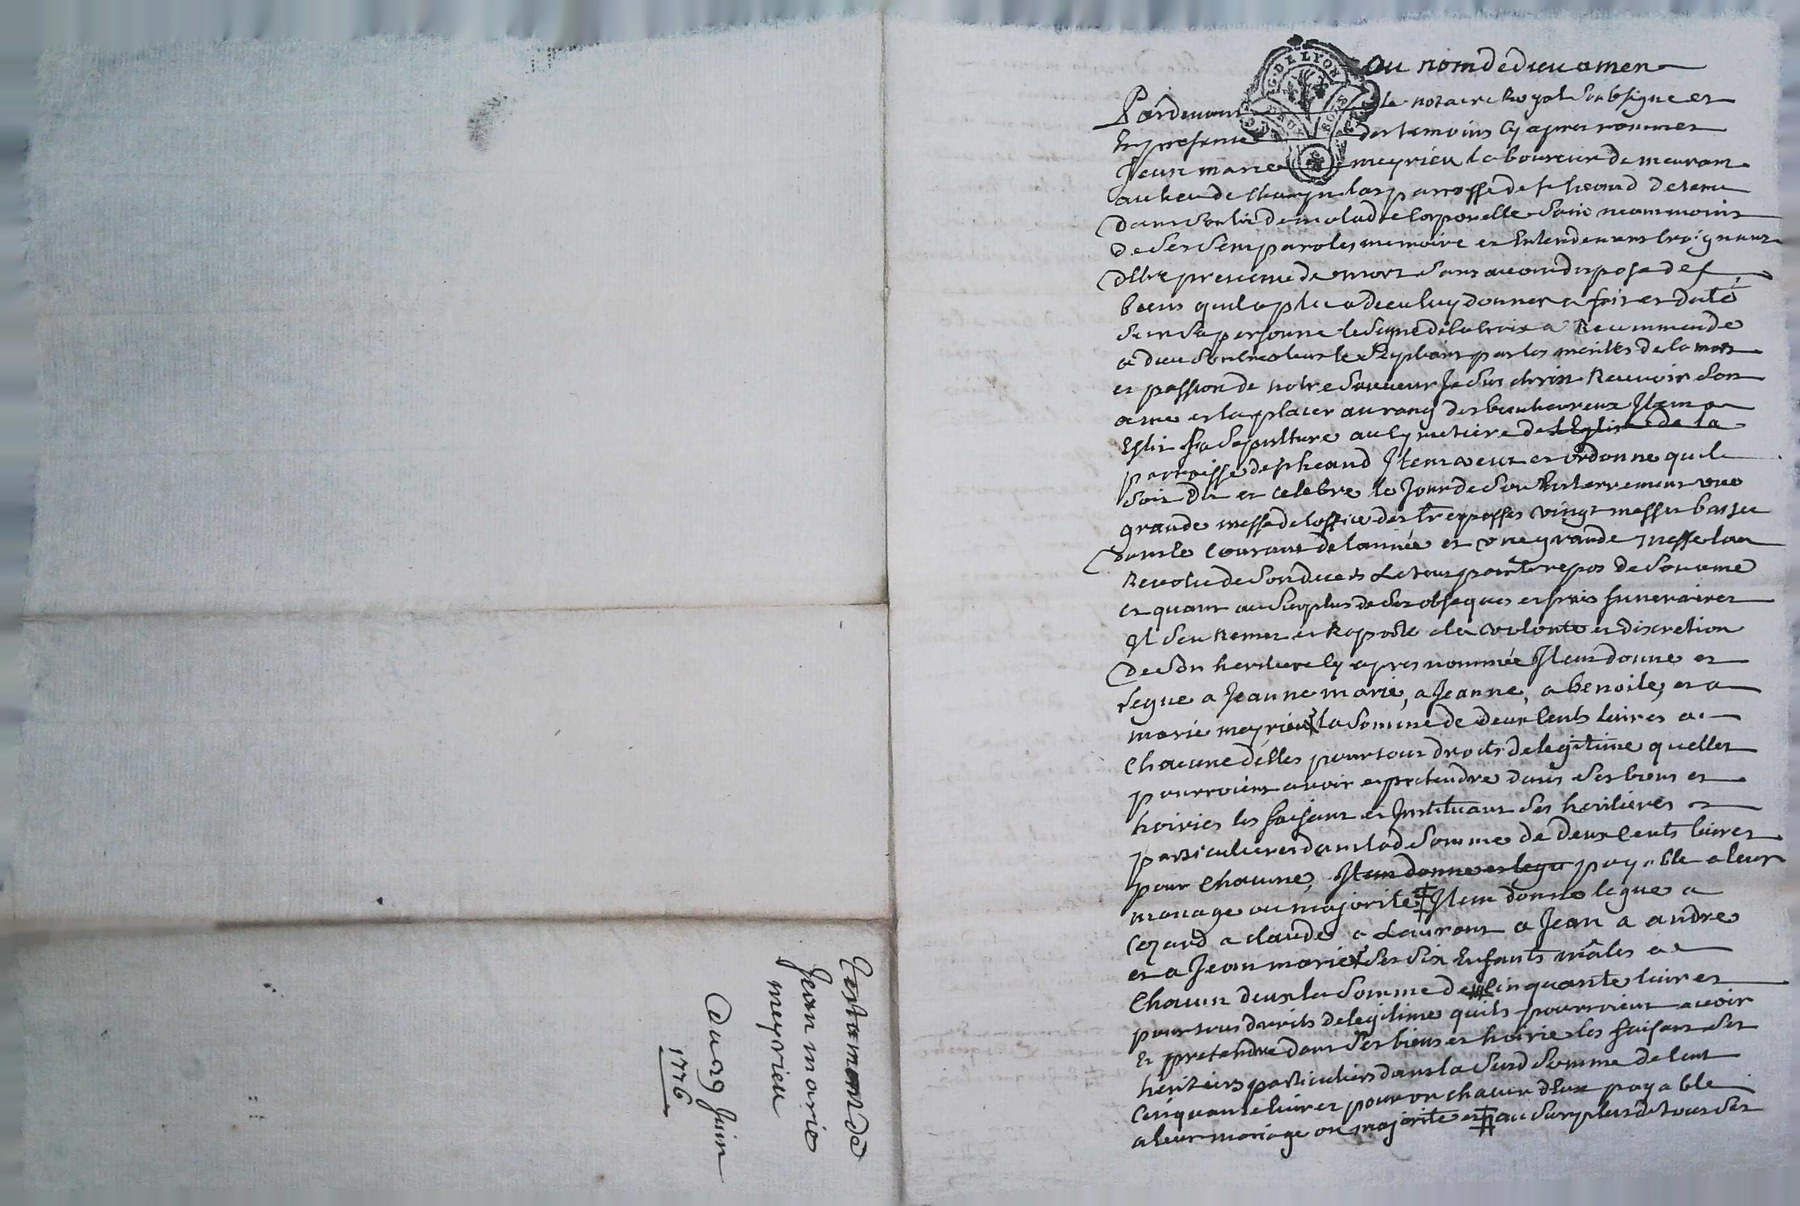 Testamant de
Jean marie
meyrieu
Du 29 Juin
1776
G. DE LYON
Au nom de dieu amen
Pardevant le notaire Royal Soubsigne et
En presence des temoins Cy apres nommes
Jean marie meyrieu laboureur demeurant
au lieu de parroisse de st heand detenu
dans son lit de maladie Corporelle Sain neammoins
de Ses Sens paroles memoire et Entendement Craignant
destre prevenu de mort Sans avoir dispose des
biens quil a plu a dieu luy donner a fait et dicte
Sur Sa personne le Signe de la Croix a Recommande
a dieu Son Createur le Supliant par les merites de la mort
et passion de notre Sauveur Jesus christ Recevoir Son
ame et la placer au rang des bienheureux Item a
Eslit Sa Sepulture au Cymetiere de l'Eglise de la
parroisse de st heand Item a veut et ordonne quil
Soit Dit et Celebre le Jour de Son Enterrement une
grande messe de l'office des trepasses vingt messes basses
dans le Courant de l'année et une grande messe l'an
Revolu de Son deceds Le tout pour le repos de Son ame
et quant au Surplus de Ses obseques et frais funeraires
Il S'en Remet et Raporte a la volonte et discretion
de Son heritiere Cy apres nommée Item donne et
legue a Jeanne marie, a Jeanne, a benoite, et a
marie meyrieu la Somme de deux Cents livres a
Chacune d'elles pour tous droits de legitime quelles
pourroient avoir et pretendre dans Ses biens et
hoiries les faisant et Instituant Ses heritieres
particulieres dans lad Somme de deux Cents livres
pour Chacune, Item donne et legue payable a leur
mariage ou majorite Item donne legue a
a claude a Laurant a Jean a andre
et a Jean marie Ses Six Enfants mâles a
Chacun deux la Somme de Cinquante livres
pour tous droits de legitime quils pourroient avoir
Et pretendre dans Ses biens et hoirie les faisant Ses
heritiers particuliers dans la Susd Somme de Cent
Cinquante livres pour un chacun d'Eux payable
a leur mariage ou majorite et au Surplus de tous Ses